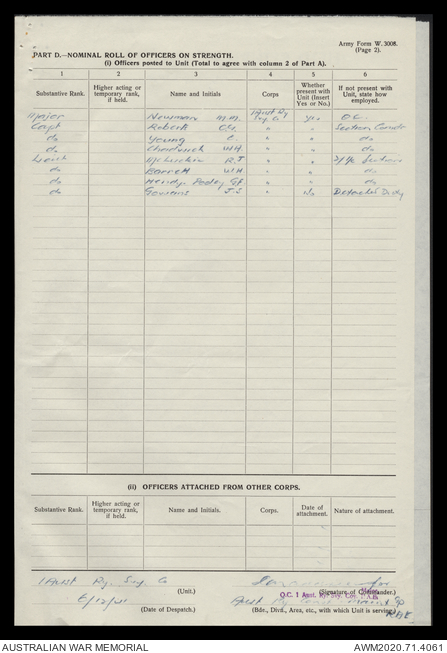 Army Form W. 3008.
(Page 2).
PART D.—NOMINAL ROLL OF OFFICERS ON STRENGTH.
(i) Officers posted to Unit (Total to agree with column 2 of Part A).
1 2 3 4 5 6
Substantive Rank. Higher acting or temporary rank, if held. Name and Initials Corps Whether present with Unit (Insert Yes or No.) If not present with Unit, state how employed.
Major Newman 1 Aust Ry Sy. Co Yes O.C.
Capt Roberts " " Section
do Young C " " do
do Chadwick W H " " do
Lieut R. J " "
do Barrett W H " " do
do " " do
do J. S " No Detached Duty
(ii) OFFICERS ATTACHED FROM OTHER CORPS.
Substantive Rank. Higher acting or temporary rank, if held. Name and Initials. Corps. Date of attachment. Nature of attachment.
1 Aust Ry. Svy. Co
(Unit.)
(Signature of Commander.)
O.C. 1 Aust. Ry. Svy. Coy.
6/12/41
(Date of Despatch.)
Aust Ry Gp
(Bde., Divn., Area, etc., with which Unit is serving.)
RAE
AUSTRALIAN WAR MEMORIAL
AWM2020.71.4061